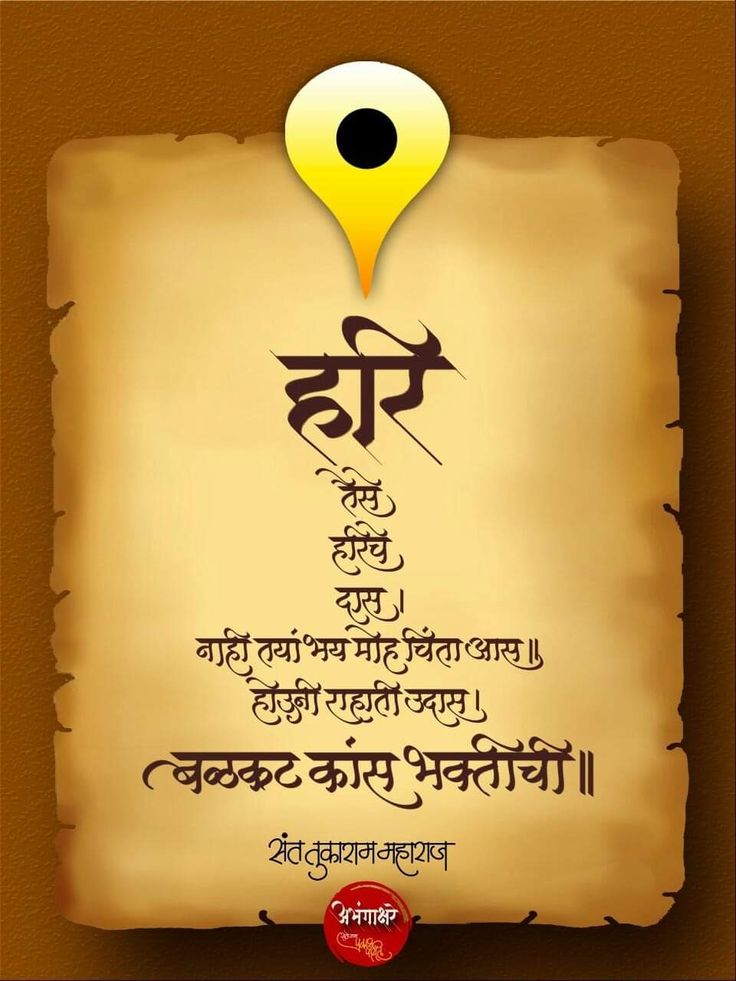 हरि
तैसे
हरिचे
दास ।
नाही तयां भय मोह चिंता आस ॥
होउनी राहाती उदास ।
बळकट कांस भक्तीची ॥
संत तुकाराम महाराज
अभंगाक्षरे